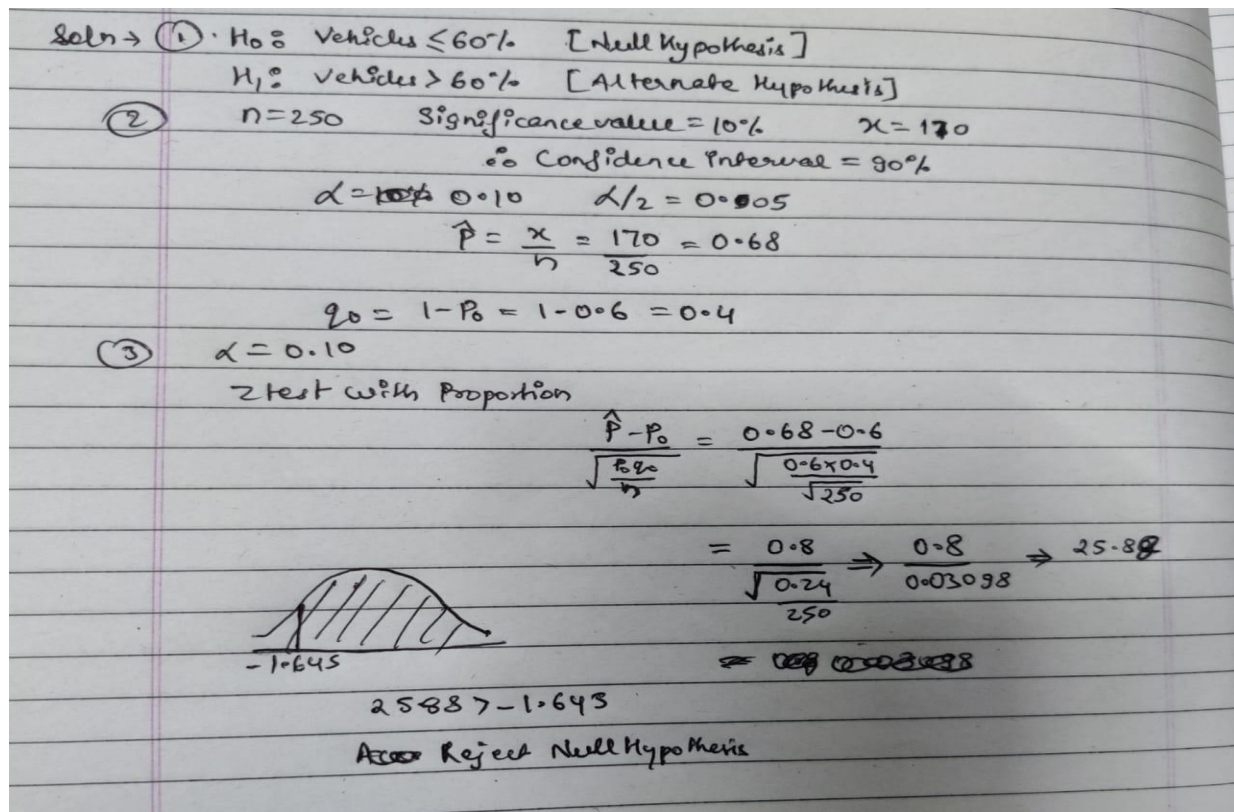 Soln → ① . H₀ : Vehicles ≤ 60% [Null Hypothesis]
H₁ : Vehicles > 60% [Alternate Hypothesis]
② n = 250 Significance value = 10% x = 170
∴ Confidence Interval = 90%
α = 0.10 α/2 = 0.005
P̂ = x/n = 170/250 = 0.68
q₀ = 1 - P₀ = 1 - 0.6 = 0.4
③ α = 0.10
Z test with Proportion
(P̂ - P₀)/√(P₀q₀/n) = (0.68 - 0.6)/√(0.6×0.4/√250)
= 0.8/(√0.24/250) ⇒ 0.8/0.03098 ⇒ 25.82
-1.645
2588 > -1.645
Reject Null Hypothesis